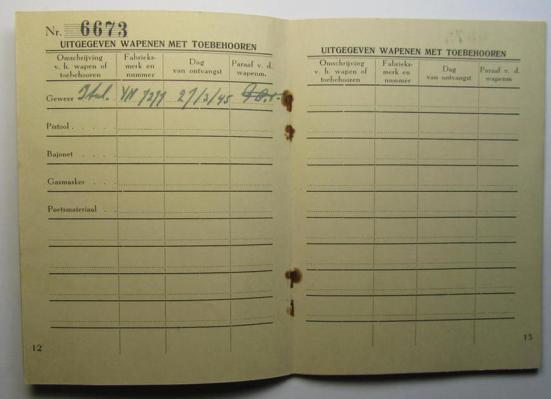 Nr. 6673
UITGEGEVEN WAPENEN MET TOEBEHOOREN
Omschrijving v. h. wapen of toebehooren
Fabrieks-merk en nummer
Dag van ontvangst
Paraaf v. d. wapenm.
Geweer Ital. 7277 27/3/45
Pistool . . . .
Bajonet . . . .
Gasmasker . . . .
Poetsmateriaal . . .
12
UITGEGEVEN WAPENEN MET TOEBEHOOREN
Omschrijving v. h. wapen of toebehooren
Fabrieks-merk en nummer
Dag van ontvangst
Paraaf v. d. wapenm
13